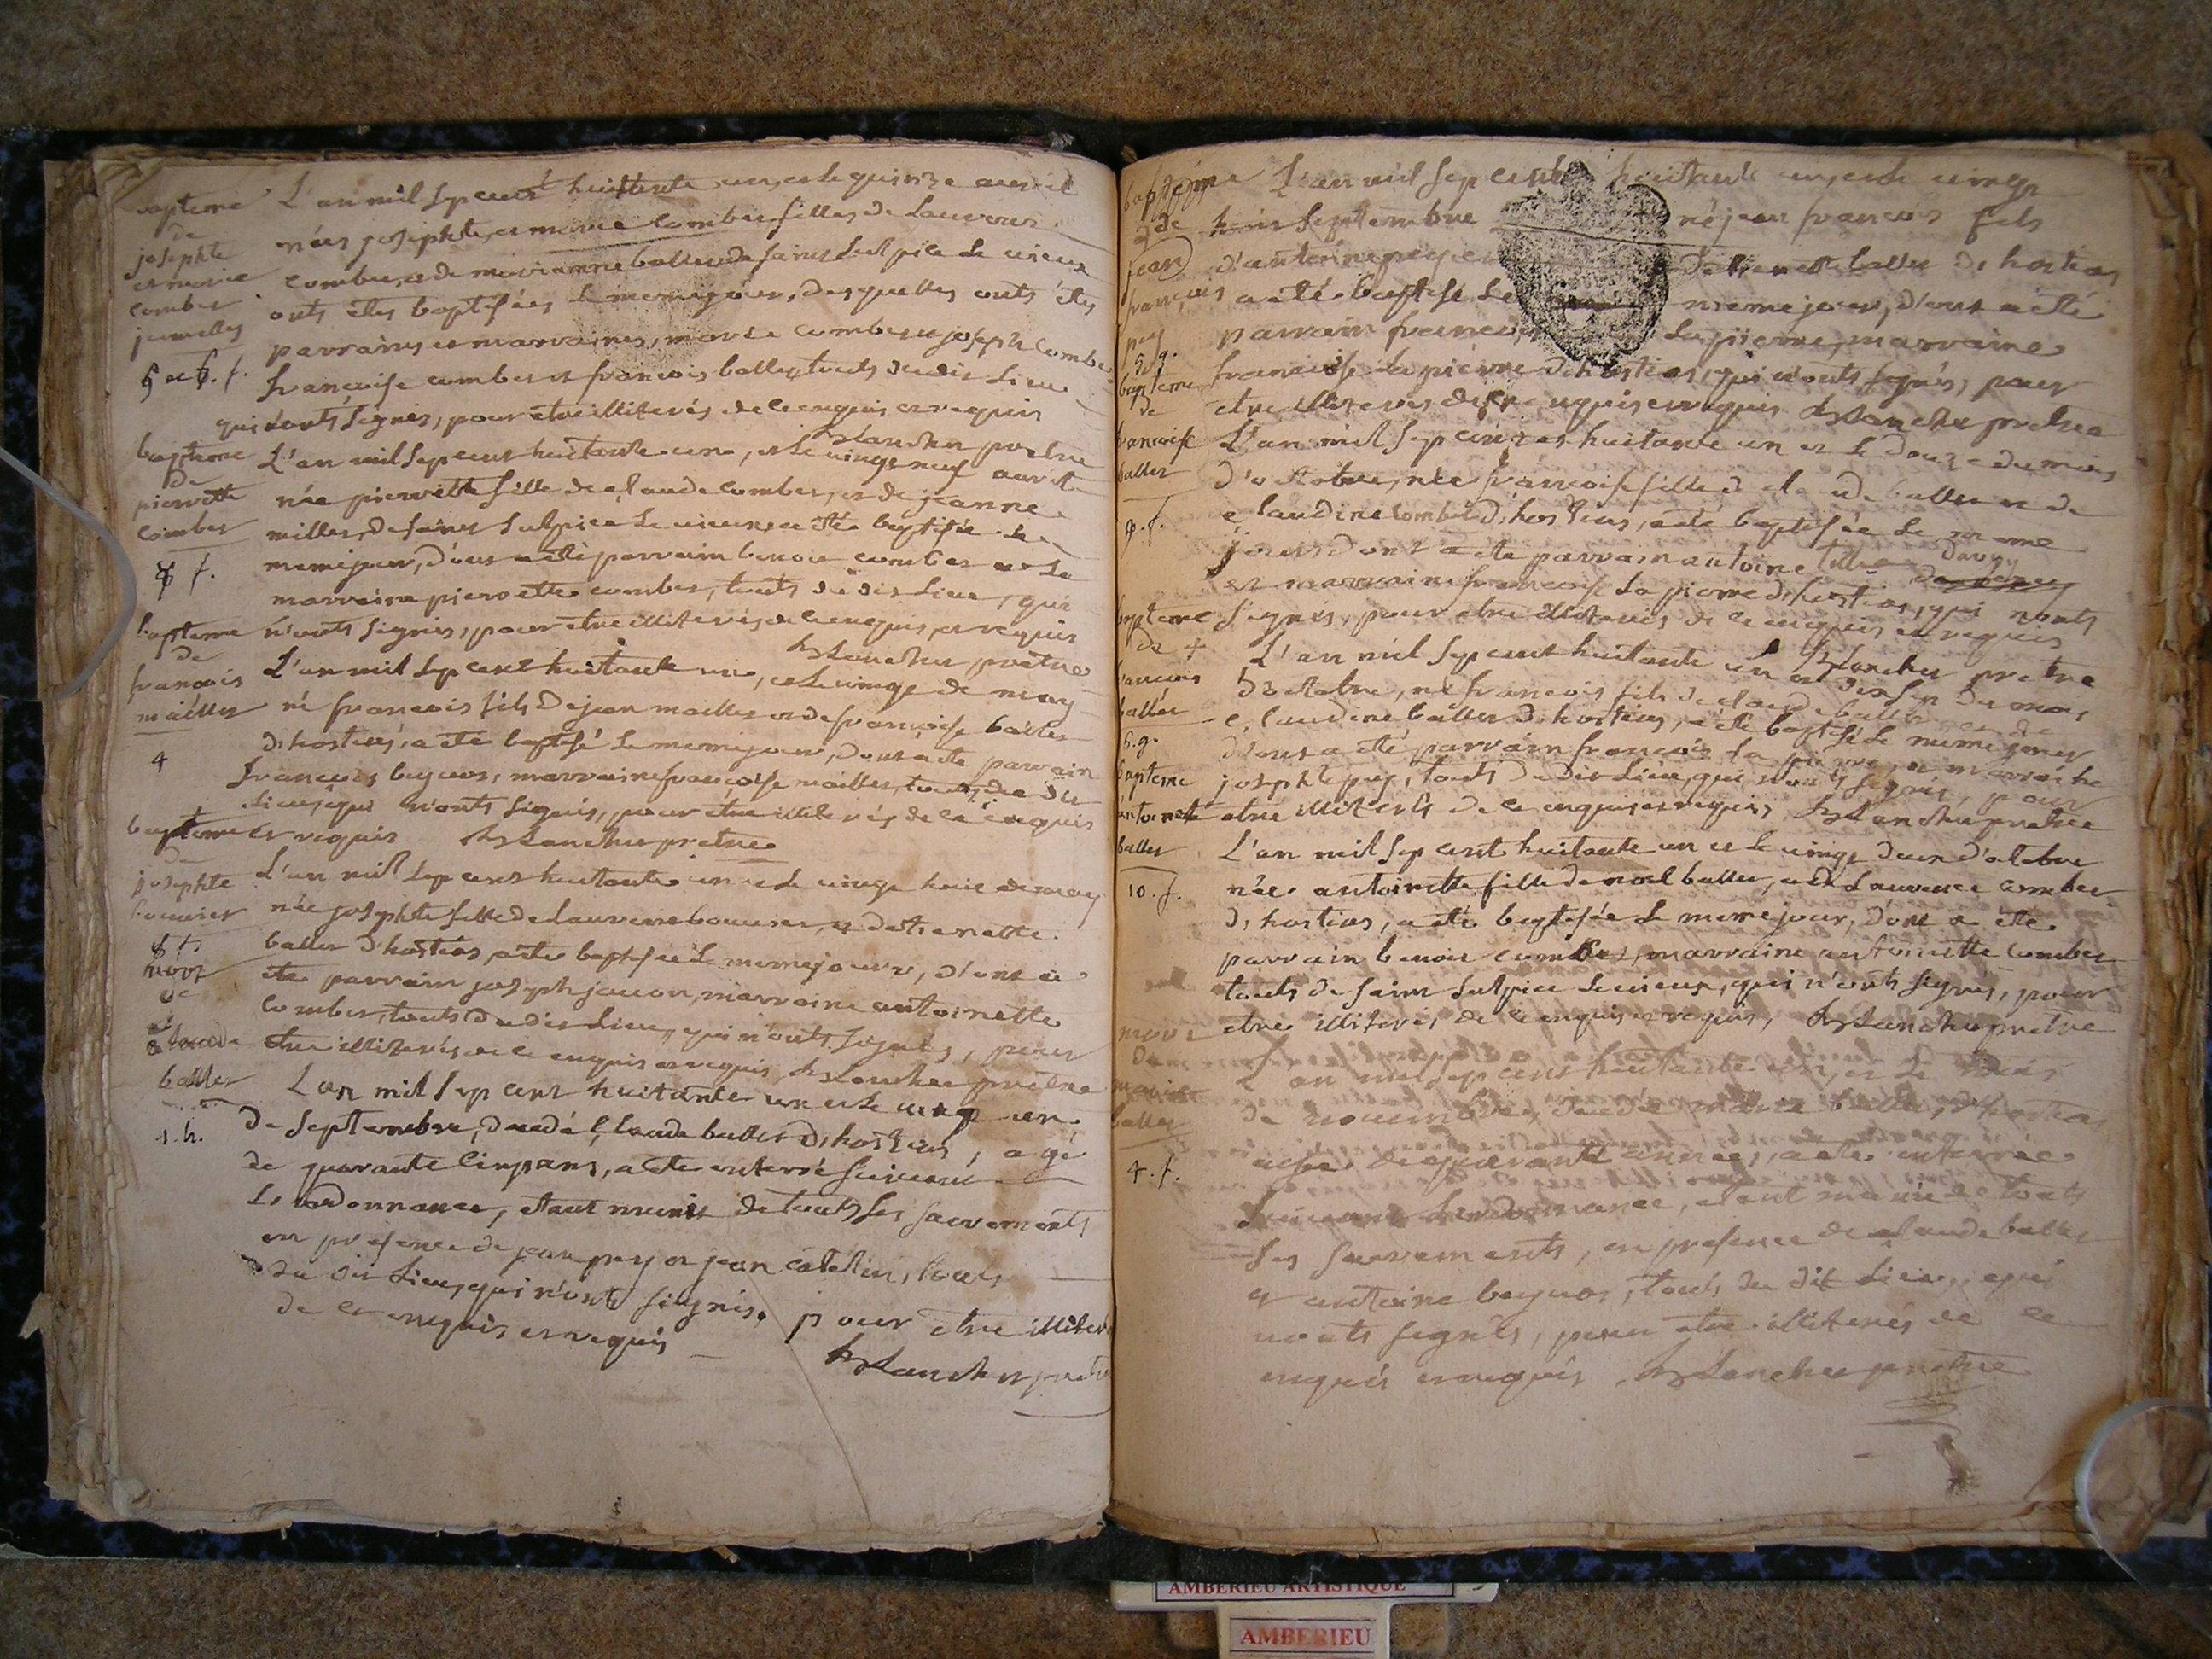 bapteme
de
josephte
et marie
comber
jumelles
5 et 6. f.
L'an mil sept cent huittante un, et le quinze auril
nées josephte, et marie comber filles de Laurens
comber, et de marianne baller de saint Sulpice Le vieux
onts étes baptisées Le meme jour, desquelles onts étes
parrains et marraines, marie comber et joseph comber
francoise comber et francois baller touts dudit Lieu
qui n'onts signés, pour etre illiterés de ce enquis et requis
Blanchet pretre
bapteme
de
pierrette
comber
f.
L'an mil sept cent huitante un, et Le vingt neuf auril
née pierrette fille de claude comber, et de jeanne
miller, de saint Sulpice Le vieux, a été baptisée Le
meme jour, d'ont a été parrain benoit comber et La
marraine pierrette comber, touts du dit Lieu, qui
n'onts signés, pour etre illiterés de ce enquis et requis
Blanchet pretre
bapteme
de
francois
mailler
4
L'an mil sept cent huitante un, et Le vingt de may
né francois fils de jean mailler et de francoise baller
d'hostias, a été baptisé Le meme jour, dont a été parrain
francois beguos, marraine francoise mailler, touts du dit
Lieu, qui n'onts signés, pour etre illiterés de ce enquis
et requis Blanchet pretre
bapteme
de
josephte
bouurier
L'an mil sept cent huitante un et Le vingt huit de may
née josephte fille de Laurens bouurier, et d'etienette
baller d'hostias, a été baptisée Le meme jour, d'ont a
été parrain joseph jauon, marraine antoinette
comber, touts du dit Lieu, qui n'onts signés, pour
etre illiterés de ce enquis et requis Blanchet pretre
mort
de
claude
baller
1. h.
L'an mil sept cent huitante un et Le vingt un
de septembre, decedé Claude baller d'hostias, agé
de quarante cinq ans, a été enterré suiuant
L'ordonnance, etant munis de touts ses sacrements
en presence de jean pey et jean catelin, touts
du dit Lieu, qui n'onts signés, pour etre illiterés
de ce enquis et requis
Blanchet pretre
bapteme
de
jean
francois
pey
5. g.
L'an mil sept cent huitante un, et le vingt
huit septembre né jean francois fils
d'antoine pey et d'etienette baller d'hostias
a été baptisé Le meme jour, d'ont a été
parrain francois Lapierre, marraine
francoise Lapierre d'hostias, qui n'onts signés, pour
etre illiterés de ce enquis et requis Blanchet pretre
bapteme
de
francoise
baller
9. f.
L'an mil sept cent et huitante un et le douze du mois
d'octobre, née francoise fille de claude baller et de
claudine comber d'hostias, a été baptisée Le meme
jour dont a été parrain antoine davey
et marraine francoise Lapierre d'hostias, qui nonts
signés, pour etre illiterés de ce enquis et requis
Blanchet pretre
bapteme
de
francois
baller
5. g.
L'an mil sept cent huitante un et dix sept du mois
d'octobre, né francois fils de claude baller, et de
claudine baller d'hostias, a été baptisé Le meme jour
d'ont a été parrain francois La pierre, et marraine
josephte pey, touts du dit Lieu, qui n'onts signés, pour
etre illiterés de ce enquis et requis Blanchet pretre
bapteme
antoinette
baller
10. f.
L'an mil sept cent huitante un et Le vingt deux d'octobre
née antoinette fille de noel baller, et de Laurence comber
d'hostias, a été baptisée Le meme jour, d'ont a été
parrain benoit comber, marraine antoinette comber
touts de saint Sulpice Le vieux, qui n'onts signés, pour
etre illiterés, de ce enquis et requis, Blanchet pretre
mort
de
marie
baller
4. f.
L'an mil sept cent huitante un, et Le trois
de nouembre, decedée marie baller, d'hostias
agée de quarante années, a été enterrée
suiuant L'ordonnance, etant munie de touts
ses sacrements, en presence de claude baller
et antoine beguos, touts du dit Lieu, qui
n'onts signés, pour etre illiterés de ce
enquis et requis, Blanchet pretre
AMBERIEU ARTISTIQUE
AMBERIEU